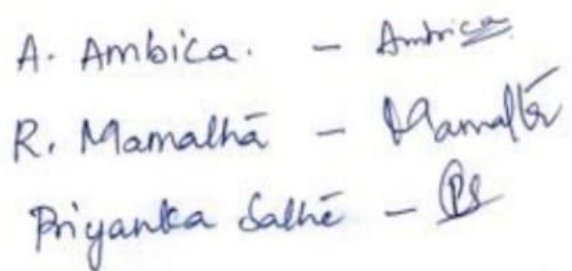 A. Ambica. - Ambica
R. Mamathā - Mamatha
Priyanka Sathē - PS